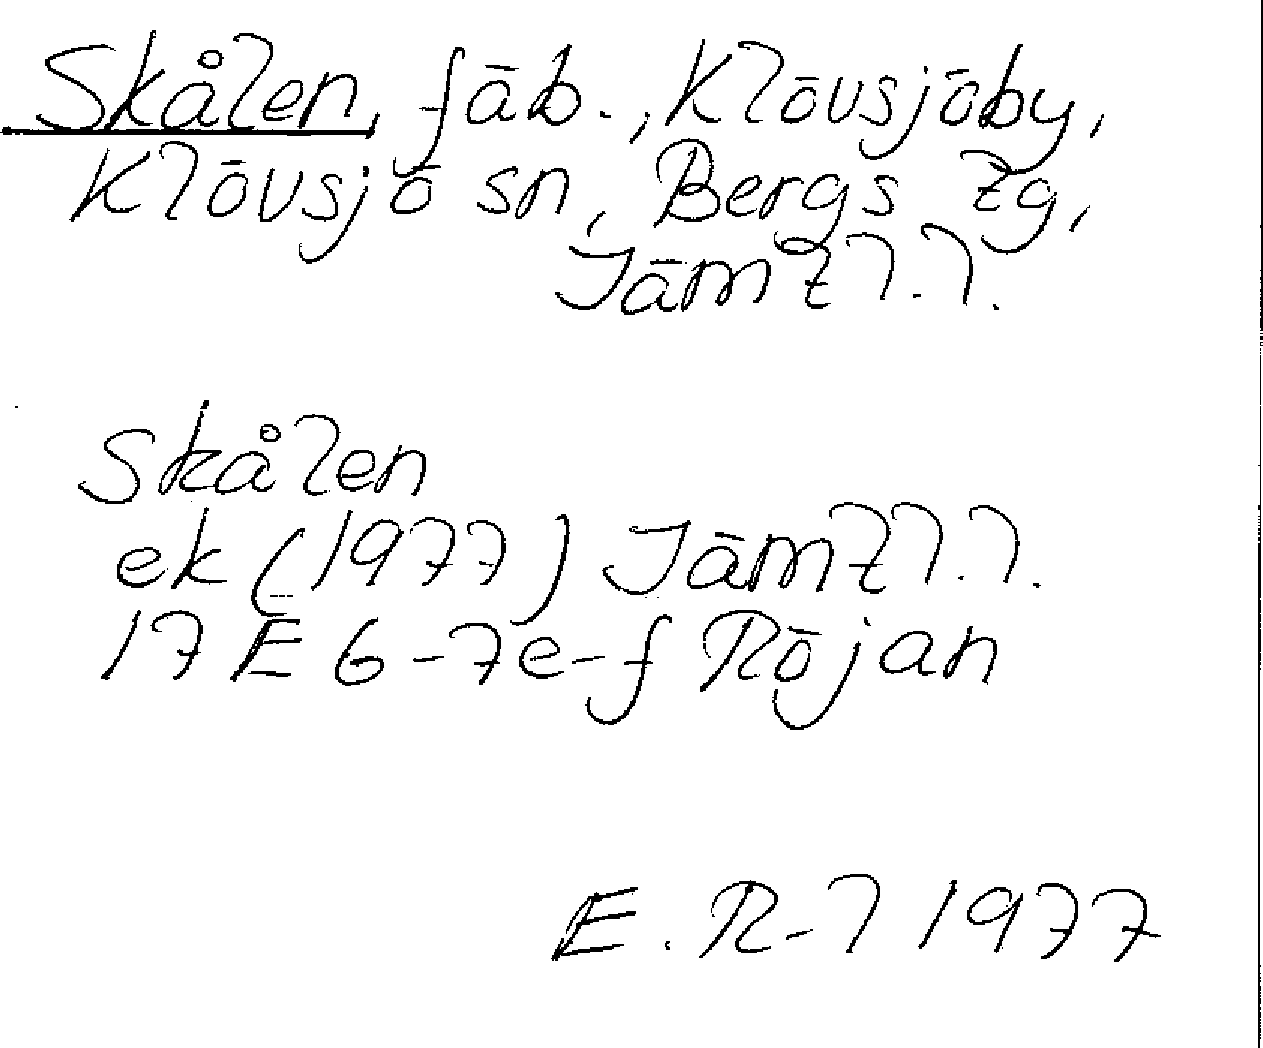 Skålen, fäb., Klövsjöby,
Klövsjö sn, Bergs tg,
Jämtl.l.
Skålen
ek (1977) Jämtl.l.
17 E 6-7e-f Röjan
E. R-l 1977